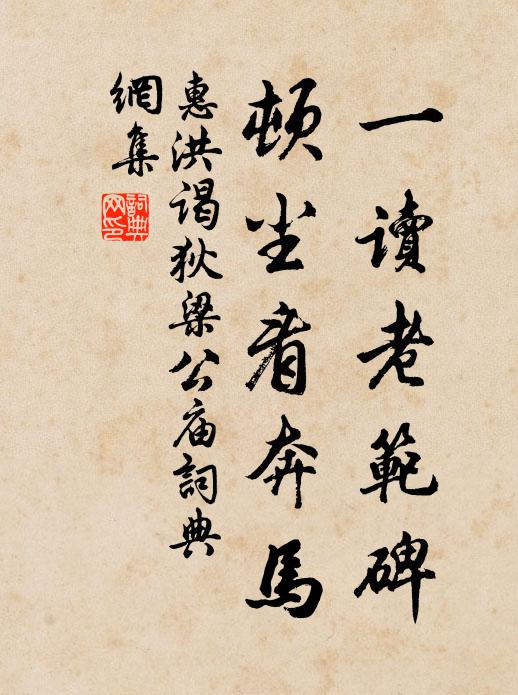 一讀老範碑
頓尘看奔馬
惠洪謁狄梁公庙詞典
網集
詞典
网印